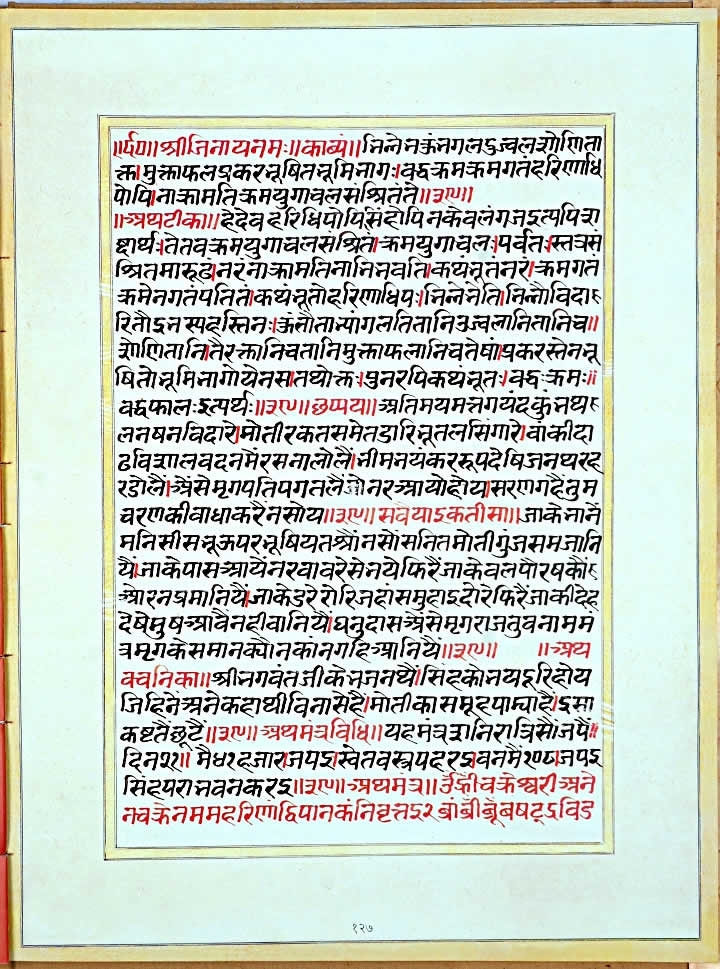 ॥र्द्द०॥ श्रीजिनायनमः॥काव्यं॥ भिन्नेभकुंभगलदुज्वलशोणिता
क्त।मुक्ताफलप्रकरभूषितभूमिभागः।बद्धक्रमक्रमगतंहरिणाधि
पोपि।नाक्रामतिक्रमयुगाचलसंश्रितंते॥३९॥
॥अथटीका॥हेदेवहरिधिपोपिसिंहोपिनकेवलंगजइत्यपिश
ष्टार्थः।तेतवक्रमयुगाचलसंश्रितं।क्रमयुगाचलः।पर्वतः।स्तत्रसं
श्रितमारूढं।नरंनाक्रामतिनाभिभवति।कथंभूतंनरं।क्रमगतं
क्रमेनगतंपतितं।कथंभूतोहरिणाधिपः।भिन्नेभेति।भिन्नौविदा
रितौइभस्यहस्तिनः।कुंभौताभ्यांगलतितानिउज्वलानितानिच॥
शोणितानि।तैरक्तानिचतानिमुक्ताफलानिचतेषां।प्रकरस्तेनभू
षितोभूमिभागोयेनस।तथोक्त।पुनरपिकथंभूतः।बद्धःक्रमः॥
बद्धफालःइत्यर्थः॥३९॥छप्पय॥अतिमयमत्तगयंदकुंभथ
लनषनविदारै।मोतीरकतसमेतडारिभूतलसिंगारै।बांकीदा
ढविशालवदनमैंरसनालोलैं।भीमभयंकररूपदेषिजनथरह
रडोलैं।अैसेमृगपतिपगतलैंजोनरआयोहोय।सरणगहैंतुम
चरणकीबाधाकरैनसोय॥३९॥सवैयाइकतीसा॥जाकेभानै
मनिसीसभूऊपरभूषियतश्रौंनसौंसनितमोतीगुंजसमजानि
यैं।जाकेपासआयेंनरबावरेसेभयेफिरैंजाकेबलपौरषकौं
औरनप्रमानियैं।जाकेडरेरोरिजहांसमुहाइदौरेफिरैंजाकीदेह
देषेमुषआवैनहीवानियैं।घनुदासअैसेमृगराजतुवनाममं
त्रमृगकैसमानक्यौनकांनगहिआनियैं॥३९॥ ॥अथ
वचनिका॥श्रीभगवंतजीकेभजनथैं।सिंहकोभयदूरिहोय
जिहिनेअनेकहाथीविनासेहैं।मोतीकासमूहपाम्याहैं।इसा
कष्टतैंछूटैं॥३९॥अथमंत्रविधि॥यहमंत्रशनिरात्रिसौंजपैं॥
दिन२१॥ मैधरहजारजपइ।स्वेतवस्त्रपहरइ।वनमैं१०८जपइ
सिंहपराभवनकरइ॥३९॥अथमंत्र॥उँह्रींचक्रेश्वरीअने
नचक्रेनममहरिणांद्विपानकंनिवृत्तइरब्रांब्रींब्रूंबषट्इविड
१२७